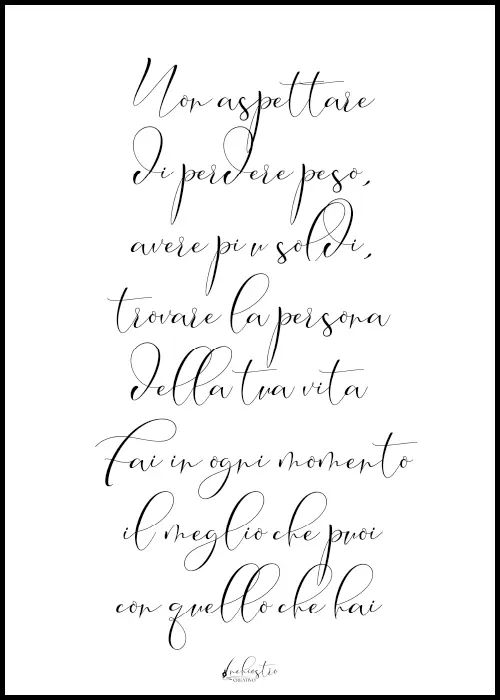 Non aspettare
di perdere peso,
avere piu soldi,
trovare la persona
della tua vita
Fai in ogni momento
il meglio che puoi
con quello che hai
Inchiostro
CREATIVO